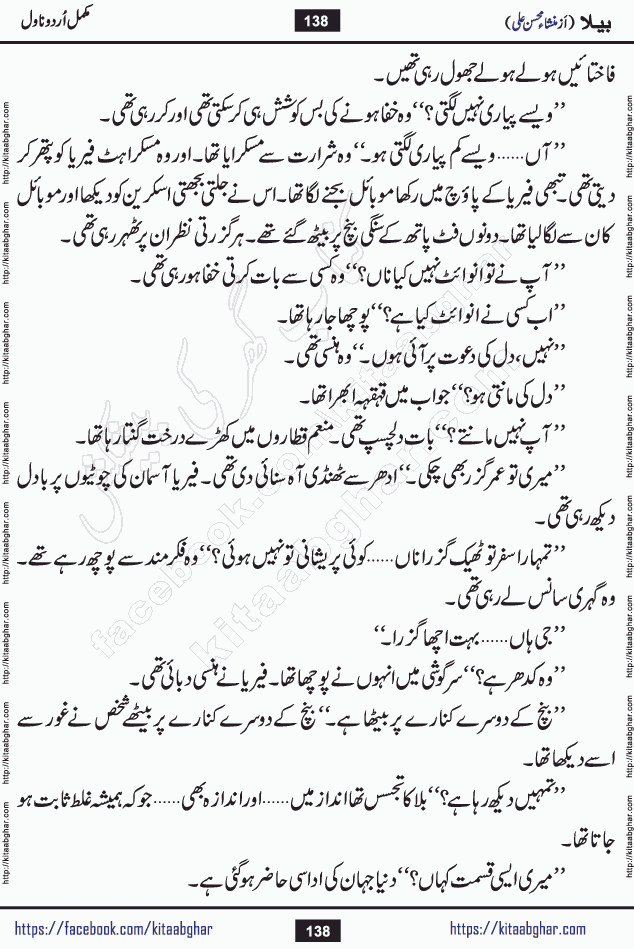 بیلا (از منشاء محسن علی) 138 مکمل اُردو ناول
فاختائیں ہولے ہولے جھول رہی تھیں۔
’’ویسے پیاری نہیں لگتی؟‘‘ وہ خفا ہونے کی بس کوشش ہی کر سکتی تھی اور کر رہی تھی۔
’’آں...... ویسے کم پیاری لگتی ہو۔‘‘ وہ شرارت سے مسکرایا تھا۔ اور وہ مسکراہٹ فیریا کو پتھر کر
دیتی تھی۔ تبھی فیریا کے پاؤچ میں رکھا موبائل بجنے لگا تھا۔ اس نے جلتی بجھتی اسکرین کو دیکھا اور موبائل
کان سے لگا لیا تھا۔ دونوں فٹ پاتھ کے سنگی بنچ پر بیٹھ گئے تھے۔ ہر گزرتی نظر ان پر ٹھہر رہی تھی۔
’’آپ نے تو انوائٹ نہیں کیا ناں؟‘‘ وہ کسی سے بات کرتی خفا ہو رہی تھی۔
’’اب کسی نے انوائٹ کیا ہے؟‘‘ پوچھا جا رہا تھا۔
’’نہیں، دل کی دعوت پر آئی ہوں۔‘‘ وہ ہنسی تھی۔
’’دل کی مانتی ہو؟‘‘ جواب میں قہقہہ ابھرا تھا۔
’’آپ نہیں مانتے؟‘‘ بات دلچسپ تھی۔ منعم قطاروں میں کھڑے درخت گنتا رہا تھا۔
’’میری تو عمر گزر بھی چکی۔‘‘ ادھر سے ٹھنڈی آہ سنائی دی تھی۔ فیریا آسمان کی چوٹیوں پر بادل
دیکھ رہی تھی۔
’’تمہارا سفر تو ٹھیک گزرا ناں...... کوئی پریشانی تو نہیں ہوئی؟‘‘ وہ فکر مند سے پوچھ رہے تھے۔
وہ گہری سانس لے رہی تھی۔
’’جی ہاں...... بہت اچھا گزرا۔‘‘
’’وہ کدھر ہے؟‘‘ سرگوشی میں انہوں نے پوچھا تھا۔ فیریا نے ہنسی دبائی تھی۔
’’بنچ کے دوسرے کنارے پر بیٹھا ہے۔‘‘ بنچ کے دوسرے کنارے پر بیٹھے شخص نے غور سے
اسے دیکھا تھا۔
’’تمہیں دیکھ رہا ہے؟‘‘ بلا کا تجسس تھا انداز میں...... اور اندازہ بھی...... جو کہ ہمیشہ غلط ثابت ہو
جاتا تھا۔
’’میری ایسی قسمت کہاں؟‘‘ دنیا جہان کی اداسی حاضر ہو گئی ہے۔
https://facebook.com/kitaabghar 138 https://kitaabghar.com
http://kitaabghar.com
کتاب گھر کی پیشکش
facebook.com/kitaabghar
kitaabghar.com